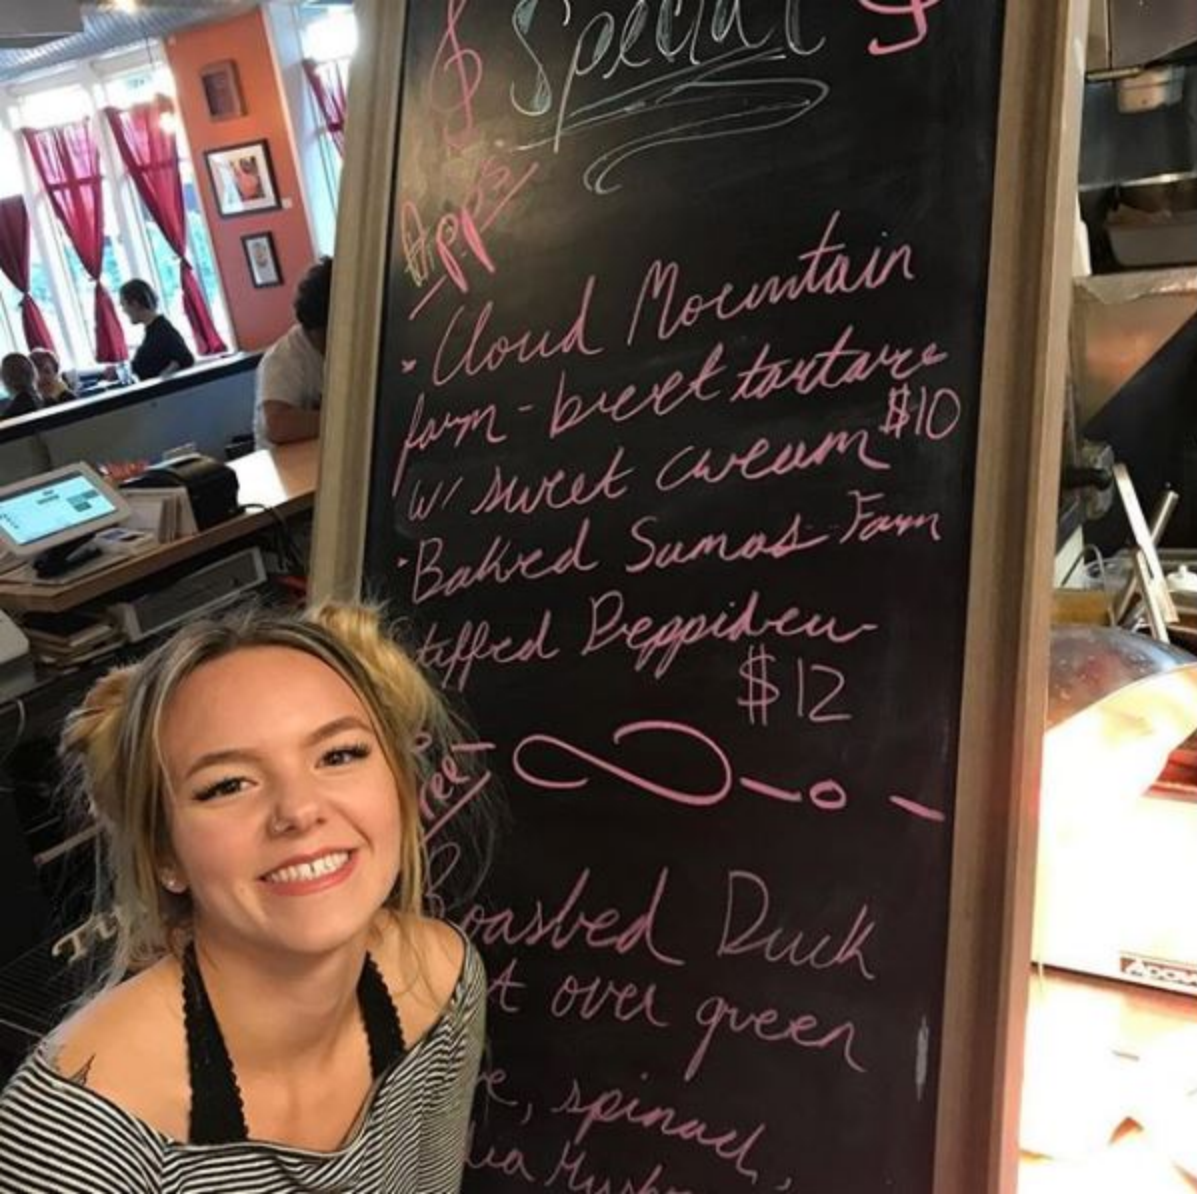 Special
Apps
Cloud Mountain
farm - beet tartare
w/ sweet cream $10
Baked Sumas Farm
Peppidew
$12
Roasted Duck
over green
, spinach,